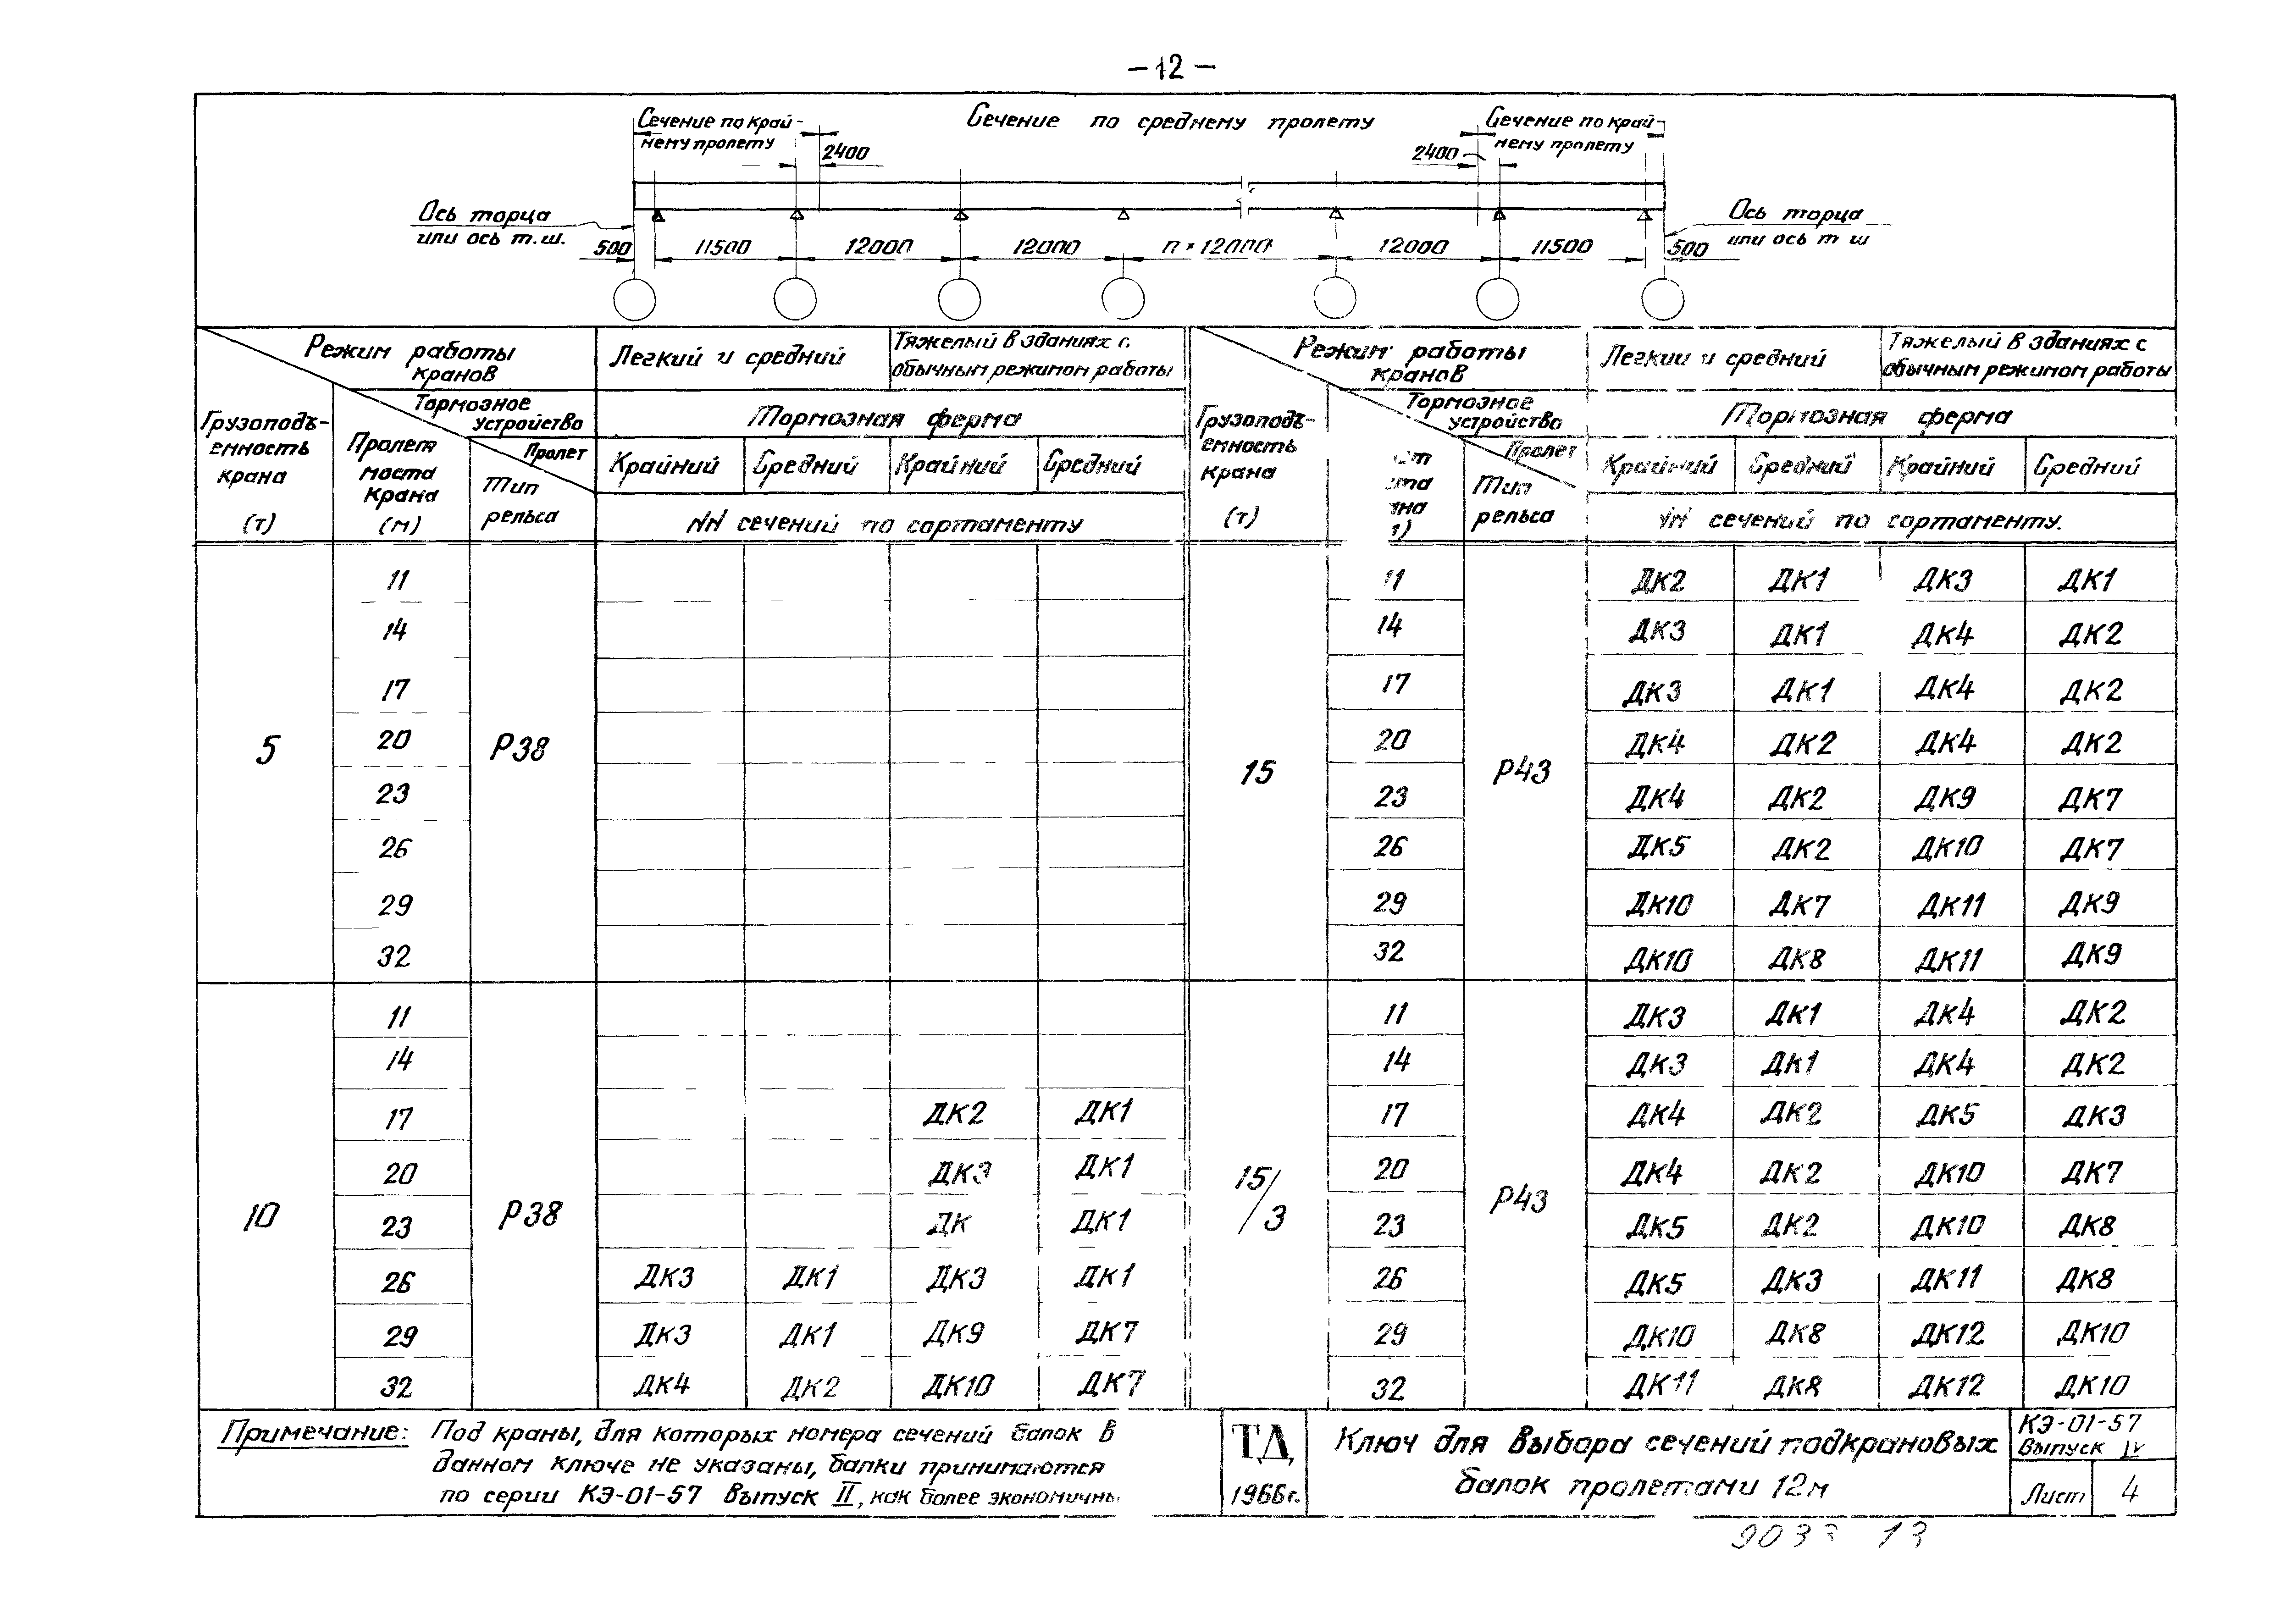 -12-
Сечение по край-
нему пролету
2400
Сечение по среднему пролету
2400
Сечение по край-
нему пролету
Ось торца
или ось т.ш.
Ось торца
или ось т ш
500 11500 12000 12000 п×12000 12000 11500 500
Режим работы
кранов
Легкий и средний
Тяжелый в зданиях с
обычным режимом работы
Тормозное
устройство
Тормозная ферма
Грузоподъ-
емность
крана
(т)
Пролет
моста
крана
(м)
Пролет
Тип
рельса
Крайний Средний Крайний Средний
NN сечений по сортаменту
5 Р38
11
14
17
20
23
26
29
32
10 Р38
11
14
17 ДК2 ДК1
20 ДК3 ДК1
23 ДК ДК1
26 ДК3 ДК1 ДК3 ДК1
29 ДК3 ДК1 ДК9 ДК7
32 ДК4 ДК2 ДК10 ДК7
Режим работы
кранов
Легкий и средний
Тяжелый в зданиях с
обычным режимом работы
Тормозное
устройство
Тормозная ферма
Грузоподъ-
емность
крана
(т)
Пролет
Тип
рельса
Крайний Средний Крайний Средний
NN сечений по сортаменту.
15 Р43
11 ДК2 ДК1 ДК3 ДК1
14 ДК3 ДК1 ДК4 ДК2
17 ДК3 ДК1 ДК4 ДК2
20 ДК4 ДК2 ДК4 ДК2
23 ДК4 ДК2 ДК9 ДК7
26 ДК5 ДК2 ДК10 ДК7
29 ДК10 ДК7 ДК11 ДК9
32 ДК10 ДК8 ДК11 ДК9
15/3 Р43
11 ДК3 ДК1 ДК4 ДК2
14 ДК3 ДК1 ДК4 ДК2
17 ДК4 ДК2 ДК5 ДК3
20 ДК4 ДК2 ДК10 ДК7
23 ДК5 ДК2 ДК10 ДК8
26 ДК5 ДК3 ДК11 ДК8
29 ДК10 ДК8 ДК12 ДК10
32 ДК11 ДК8 ДК12 ДК10
Примечание: Под краны, для которых номера сечений балок в
данном ключе не указаны, балки принимаются
по серии КЭ-01-57 Выпуск II, как более экономичны
ТД
1966г.
Ключ для выбора сечений подкрановых
балок пролетами 12м
КЭ-01-57
Выпуск IV
Лист 4
9033 13